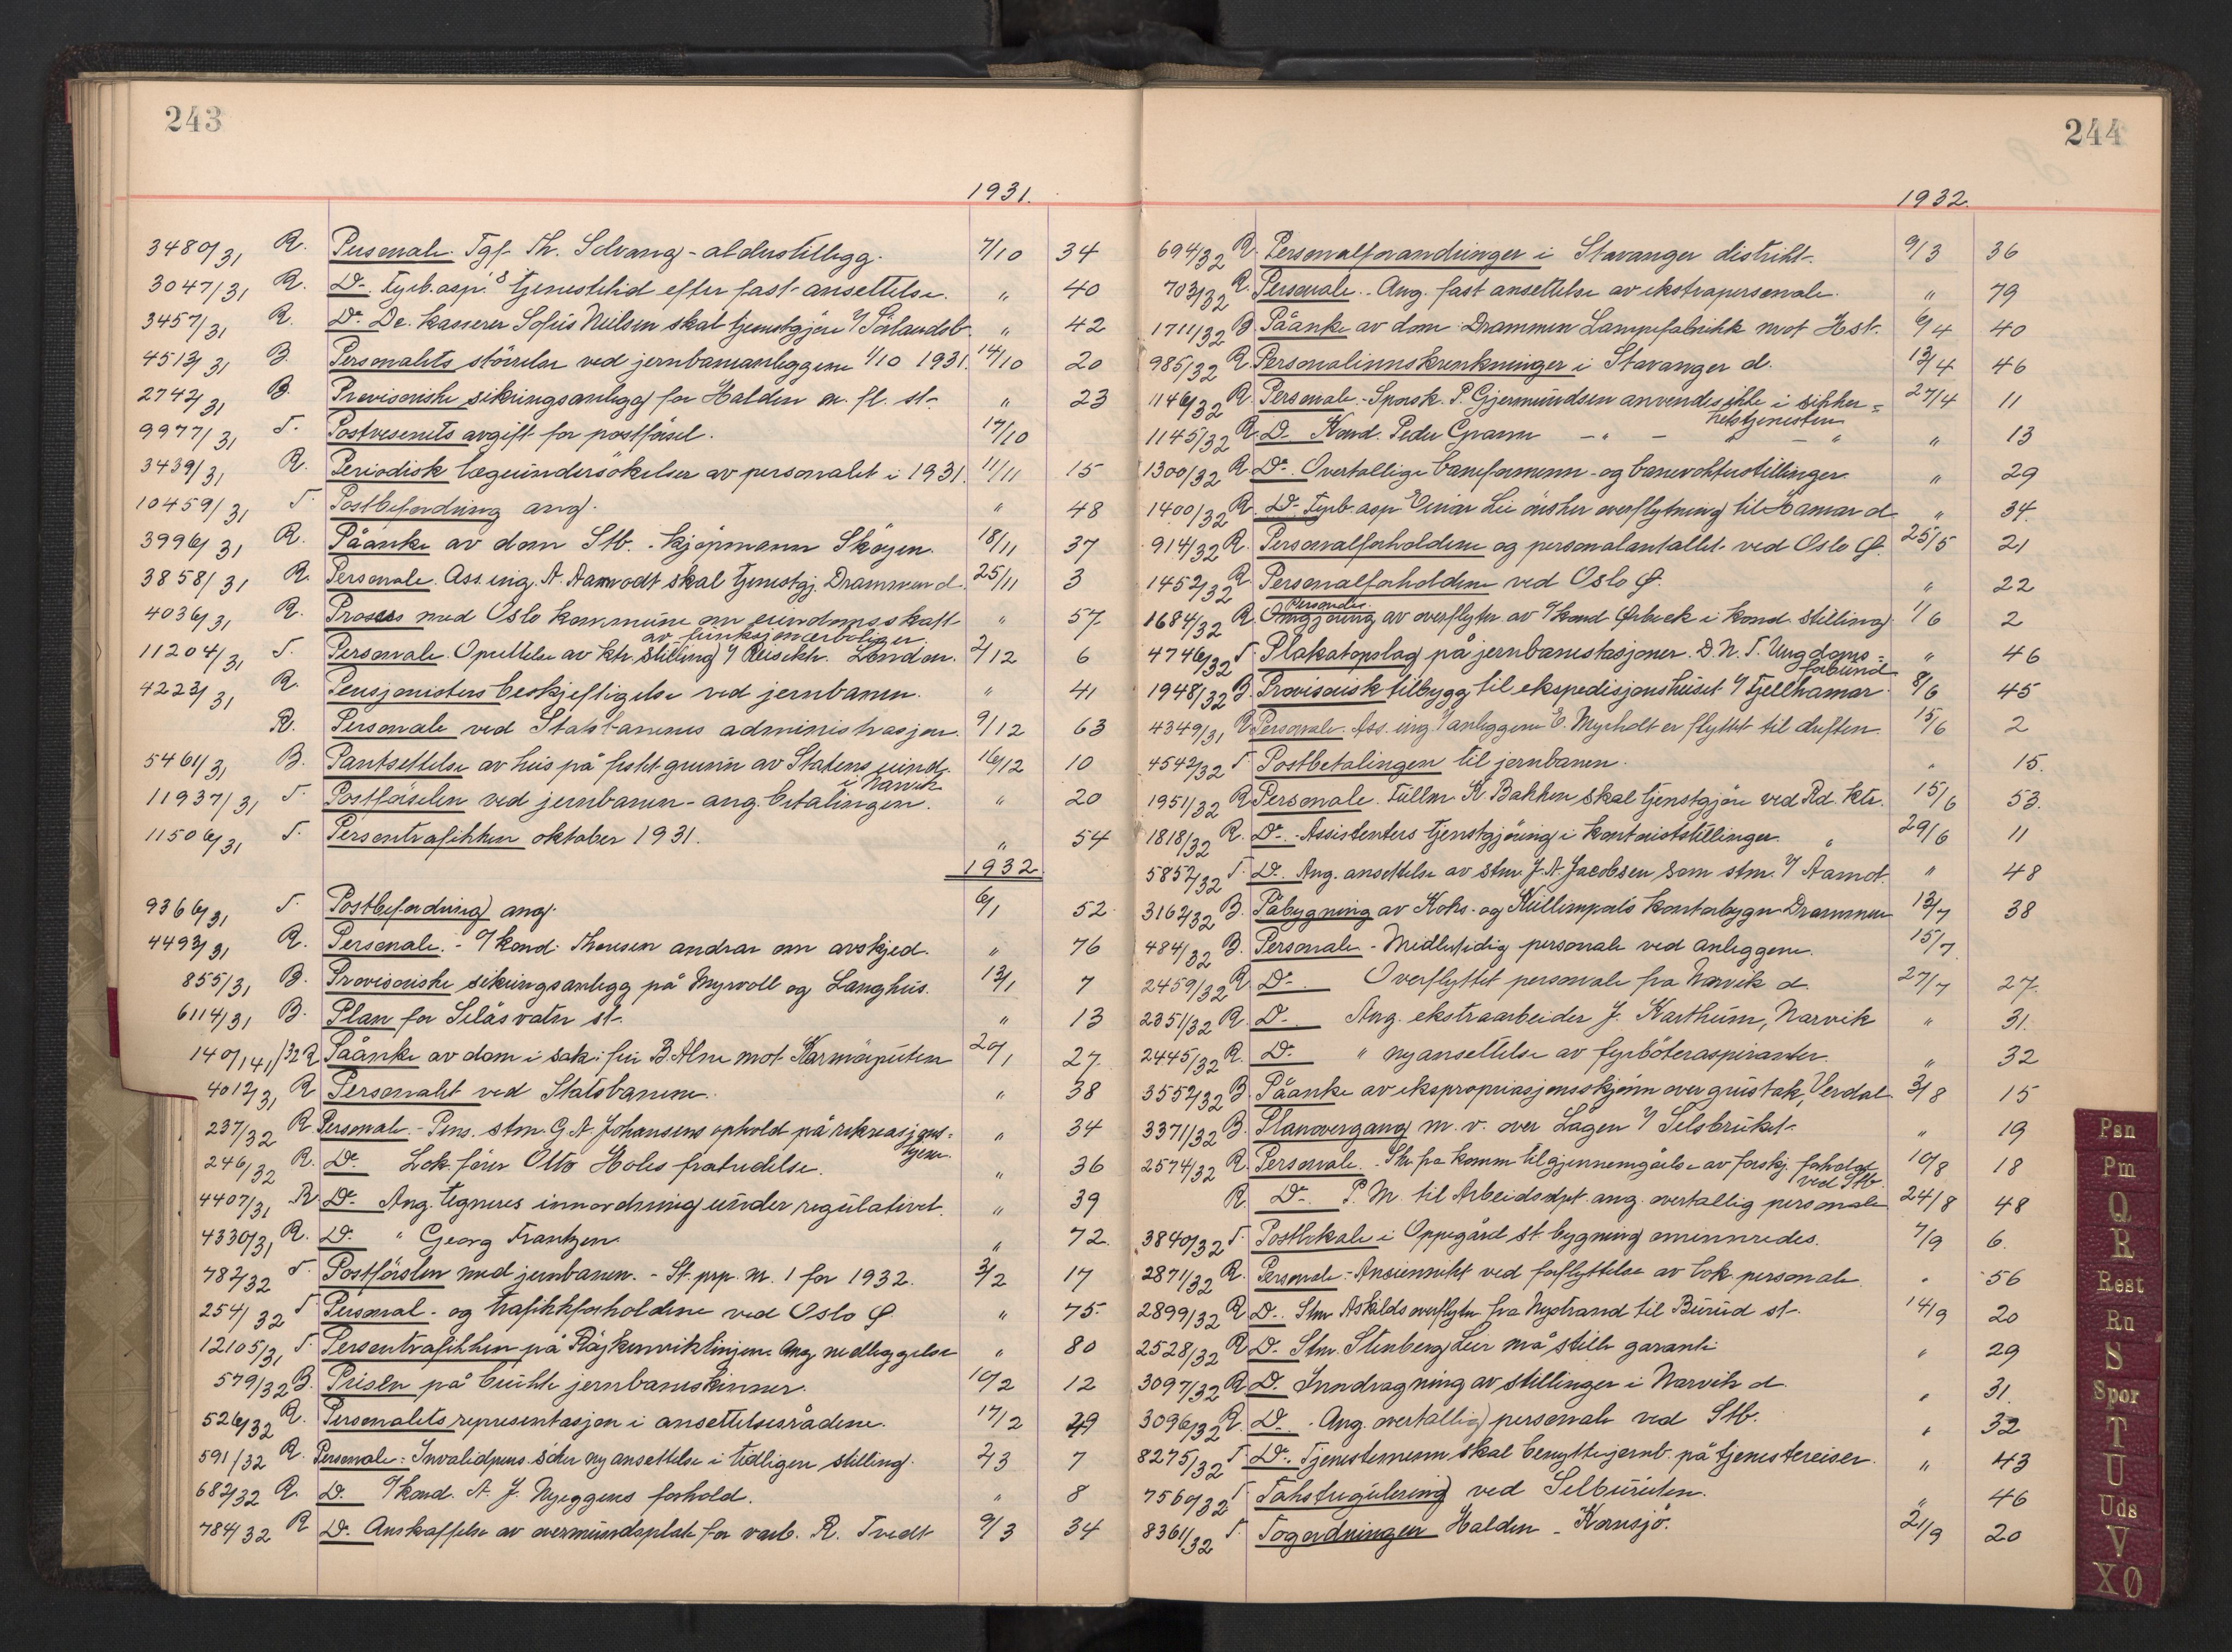 243
1931.
3480/31 R. Personale. Tgf. Th. Solvang - alderstillegg. 7/10 34
3047/31 R. Do. Fyrb.asp.s tjenestetid efter fast ansettelse. " 40
3457/31 R. Do. De. kasserer Sofus Neilsen skal tjenestgjøre v/ Sørlandsb. " 42
4513/31 B. Personalets størrelse ved jernbaneanleggene 1/10 1931. 14/10 20
2742/31 B. Provisoriske sikringsanlegg for Halden m. fl. st. " 23
9977/31 T. Postvesenets avgift for postførsel. 17/10
3439/31 R. Periodisk lægeundersökelser av personalet i 1931. 11/11 15
10459/31 T. Postbefordring ang. " 48
3996/31 R. Påanke av dom Stb. - kjøpmann Skøyen. 18/11 37
3858/31 R. Personale. Ass. ing. A. Aamodt skal tjenestgj. Drammen d. 25/11 3
4036/31 R. Prosess med Oslo kommune om eiendomsskatt " 57
av funksjonærboliger.
11204/31 T. Personale. Oprettelse av ktr. stilling v/ Reisektr. London. 2/12 6
4223/31 R. Pensjonisters beskjeftigelse ved jernbanen. " 41
R. Personale ved Statsbanenes administrasjon. 9/12 63
5461/31 B. Pantsettelse av hus på festet grunn av Statens eiend. 16/12 10
i Narvik
11937/31 T. Postførselen ved jernbanen - ang. betalingen. " 20
11506/31 T. Persontrafikken oktober 1931. " 54
1932
9366/31 T. Postbefordring ang. 6/1 52
4493/31 R. Personale. - v/kond. Thoresen andrar om avskjed. " 76
855/31 B. Provisoriske sikringsanlegg på Myrvoll og Langhus. 13/1 7
6114/31 B. Plan for Selåsvatn st. " 13
140/141/32 R Påanke av dom i sak: fru B. Alne mot Karmøyruten 20/1 27
4012/31 R Personalet ved Statsbanene. " 38
237/32 R Personale. - Pens. stm. G. A. Johansens ophold på rekreasjons- " 34
hjem.
246/32 R. Do. Lok.fører Otto Holes fratredelse. " 36
4407/31 R Do. Ang. tegneres innordning under regulativet. " 39
4330/31 R. Do. " Georg Frantzen " 72
782/32 T Postførslen med jernbanen. - St. prp. nr. 1 for 1932. 3/2 17
254/32 T Personal- og trafikkforholdene ved Oslo Ø. " 75
12105/31 T. Persontrafikken på Røykenviklinjen. Ang. nedleggelse " 80
579/32 B. Prisen på brukte jernbaneskinner. 10/2 12
526/32 R. Personalets representasjon i ansettelsesrådene. 17/2 49
591/32 R. Personale: Invalidpens. søker ny ansettelse i tidligere stilling. 2/3 7
682/32 R. Do. v/kond. A. J. Nyeggens forhold. " 8
784/32 R Do. Anskaffelse av overmunnsplate for vaib. R. Tvedt 9/3 34
244
1932.
694/32 R. Personalforandringer i Stavanger distrikt. 9/3 36
703/32 R. Personale. - Ang. fast ansettelse av ekstrapersonale. " 79
1711/32 B Påanke av dom Drammen Lampefabrikk mot Hst. 6/4 40
985/32 R. Personalinnskrenkninger i Stavanger d. 13/4 46
1146/32 R. Personale. - Sporsk. P. Gjermundsen anvendes ikke i sikker- 27/4 11
hetstjenesten
1145/32 R. Do Kond. Peder Gramm - " - - " " 13
1300/32 R Do. Overtallige baneformenn- og banevokterstillinger. " 29
1400/32 R. Do. Fyrb.asp. Einar Lie ønsker overflytning til Hamar d " 34.
914/32 R. Personalforholdene og personalantallet ved Oslo Ø. 25/5 21
1452/32 R Personalforholdene ved Oslo Ø. " 22
Personale.
1684/32 R. Omgjøring av overflytn. av v/kond Ørbeck i kond. stilling 1/6 2
4746/32 T Plakatopslag på jernbanestasjoner. D. N. T. Ungdoms- " 46
forbund
1948/32 B. Provisorisk tilbygg til ekspedisjonshuset v/ Fjellhamar 8/6 45
4349/31 R Personale. Ass. ing. v/anleggene E. Myrholt er flyttet til driften. 15/6 2
4542/32 T Postbetalingen til jernbanen. " 15.
1951/32 R Personale. Fullm. K. Bakken skal tjenstgjøre ved Rd. ktr. 15/6 53.
1818/32 R. Do. - Assistenters tjenstgjøring i kontoristsstillinger. " 29/6 11
5852/32 T. Do. Ang. ansettelse av stm. J. A. Jacobsen som stm. v/ Aamot. " 48
3162/32 B. Påbygning av Koks- og Kullimports kontorbygn. Drammen 13/7 38
484/32 B. Personale - Midlertidig personale ved anleggene. 15/7
2459/32 R Do. Overflyttet personale fra Narvik d. 27/7 27.
2351/32 R. Do. Ang. ekstraarbeider J. Karthum, Narvik " 31.
2445/32 R. Do. " nyansettelse av fyrbøteraspiranter. " 32
3552/32 B. Påanke av ekspropriasjonsskjønn over grustak, Verdal. 3/8 15
3371/32 B. Planovergang m. v. over Lågen v/ Selsbruket. " 19
2574/32 R. Personale. - Skr. fra komm. til gjennemgåelse av forskj. forholdet 10/8 18
ved Stb.
R Do. P. M. til Arbeidsdept. ang. overtallig personale 24/8 48
3840/32 T. Postlokale i Oppegård st. bygning ominnredes. 7/9 6.
2871/32 R. Personale. - Ansiennitet ved forflyttelse av lok. personale. " 56
2899/32 R Do. Stm Askilds overflytn. fra Nystrand til Burud st. 14/9 20
2528/32 R Do. Stm. Stenberg Leir må stille garanti " 29
3097/32 R Do. Inndragning av stillinger i Narvik d. " 31.
3096/32 R. Do. - Ang. overtallig personale ved Stb. " 32
8275/32 T. Do. Tjenestemenn skal benytte jernb. på tjenestereiser. " 43
7560/32 T Takstregulering ved Selburuten. " 46
8361/32 T. Togordningen Halden - Kornsjø. 21/9 20
Psn
Pm
Q
R
Rest
Rn
S
Spor
T
U
Uds
V
XØ